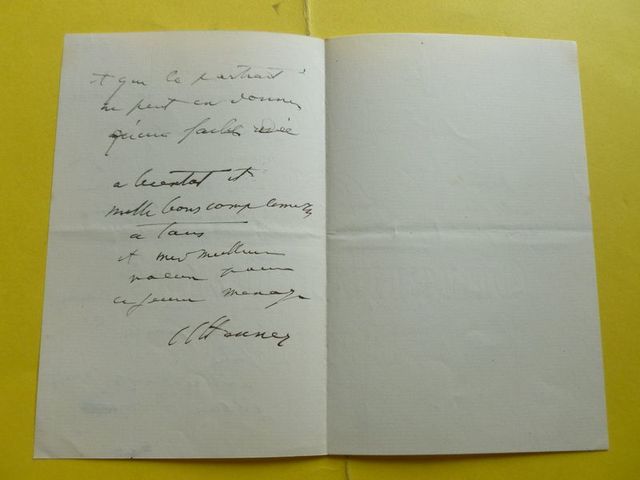 et que le portrait
ne peut en donner
qu'une faible idée
a bientot et
mille bons compliments
a tous
et mes meilleurs
voeux pour
ce jeune menage